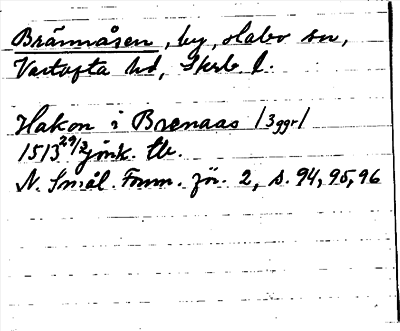 Brännåsen, by, Habo sn,
Vartofta hd, Skarb l.
Hakon i Brenaas /3ggr/
1513 29/2 Jönk. tb.
N. Smål. Fornm. för. 2, s. 94, 95, 96